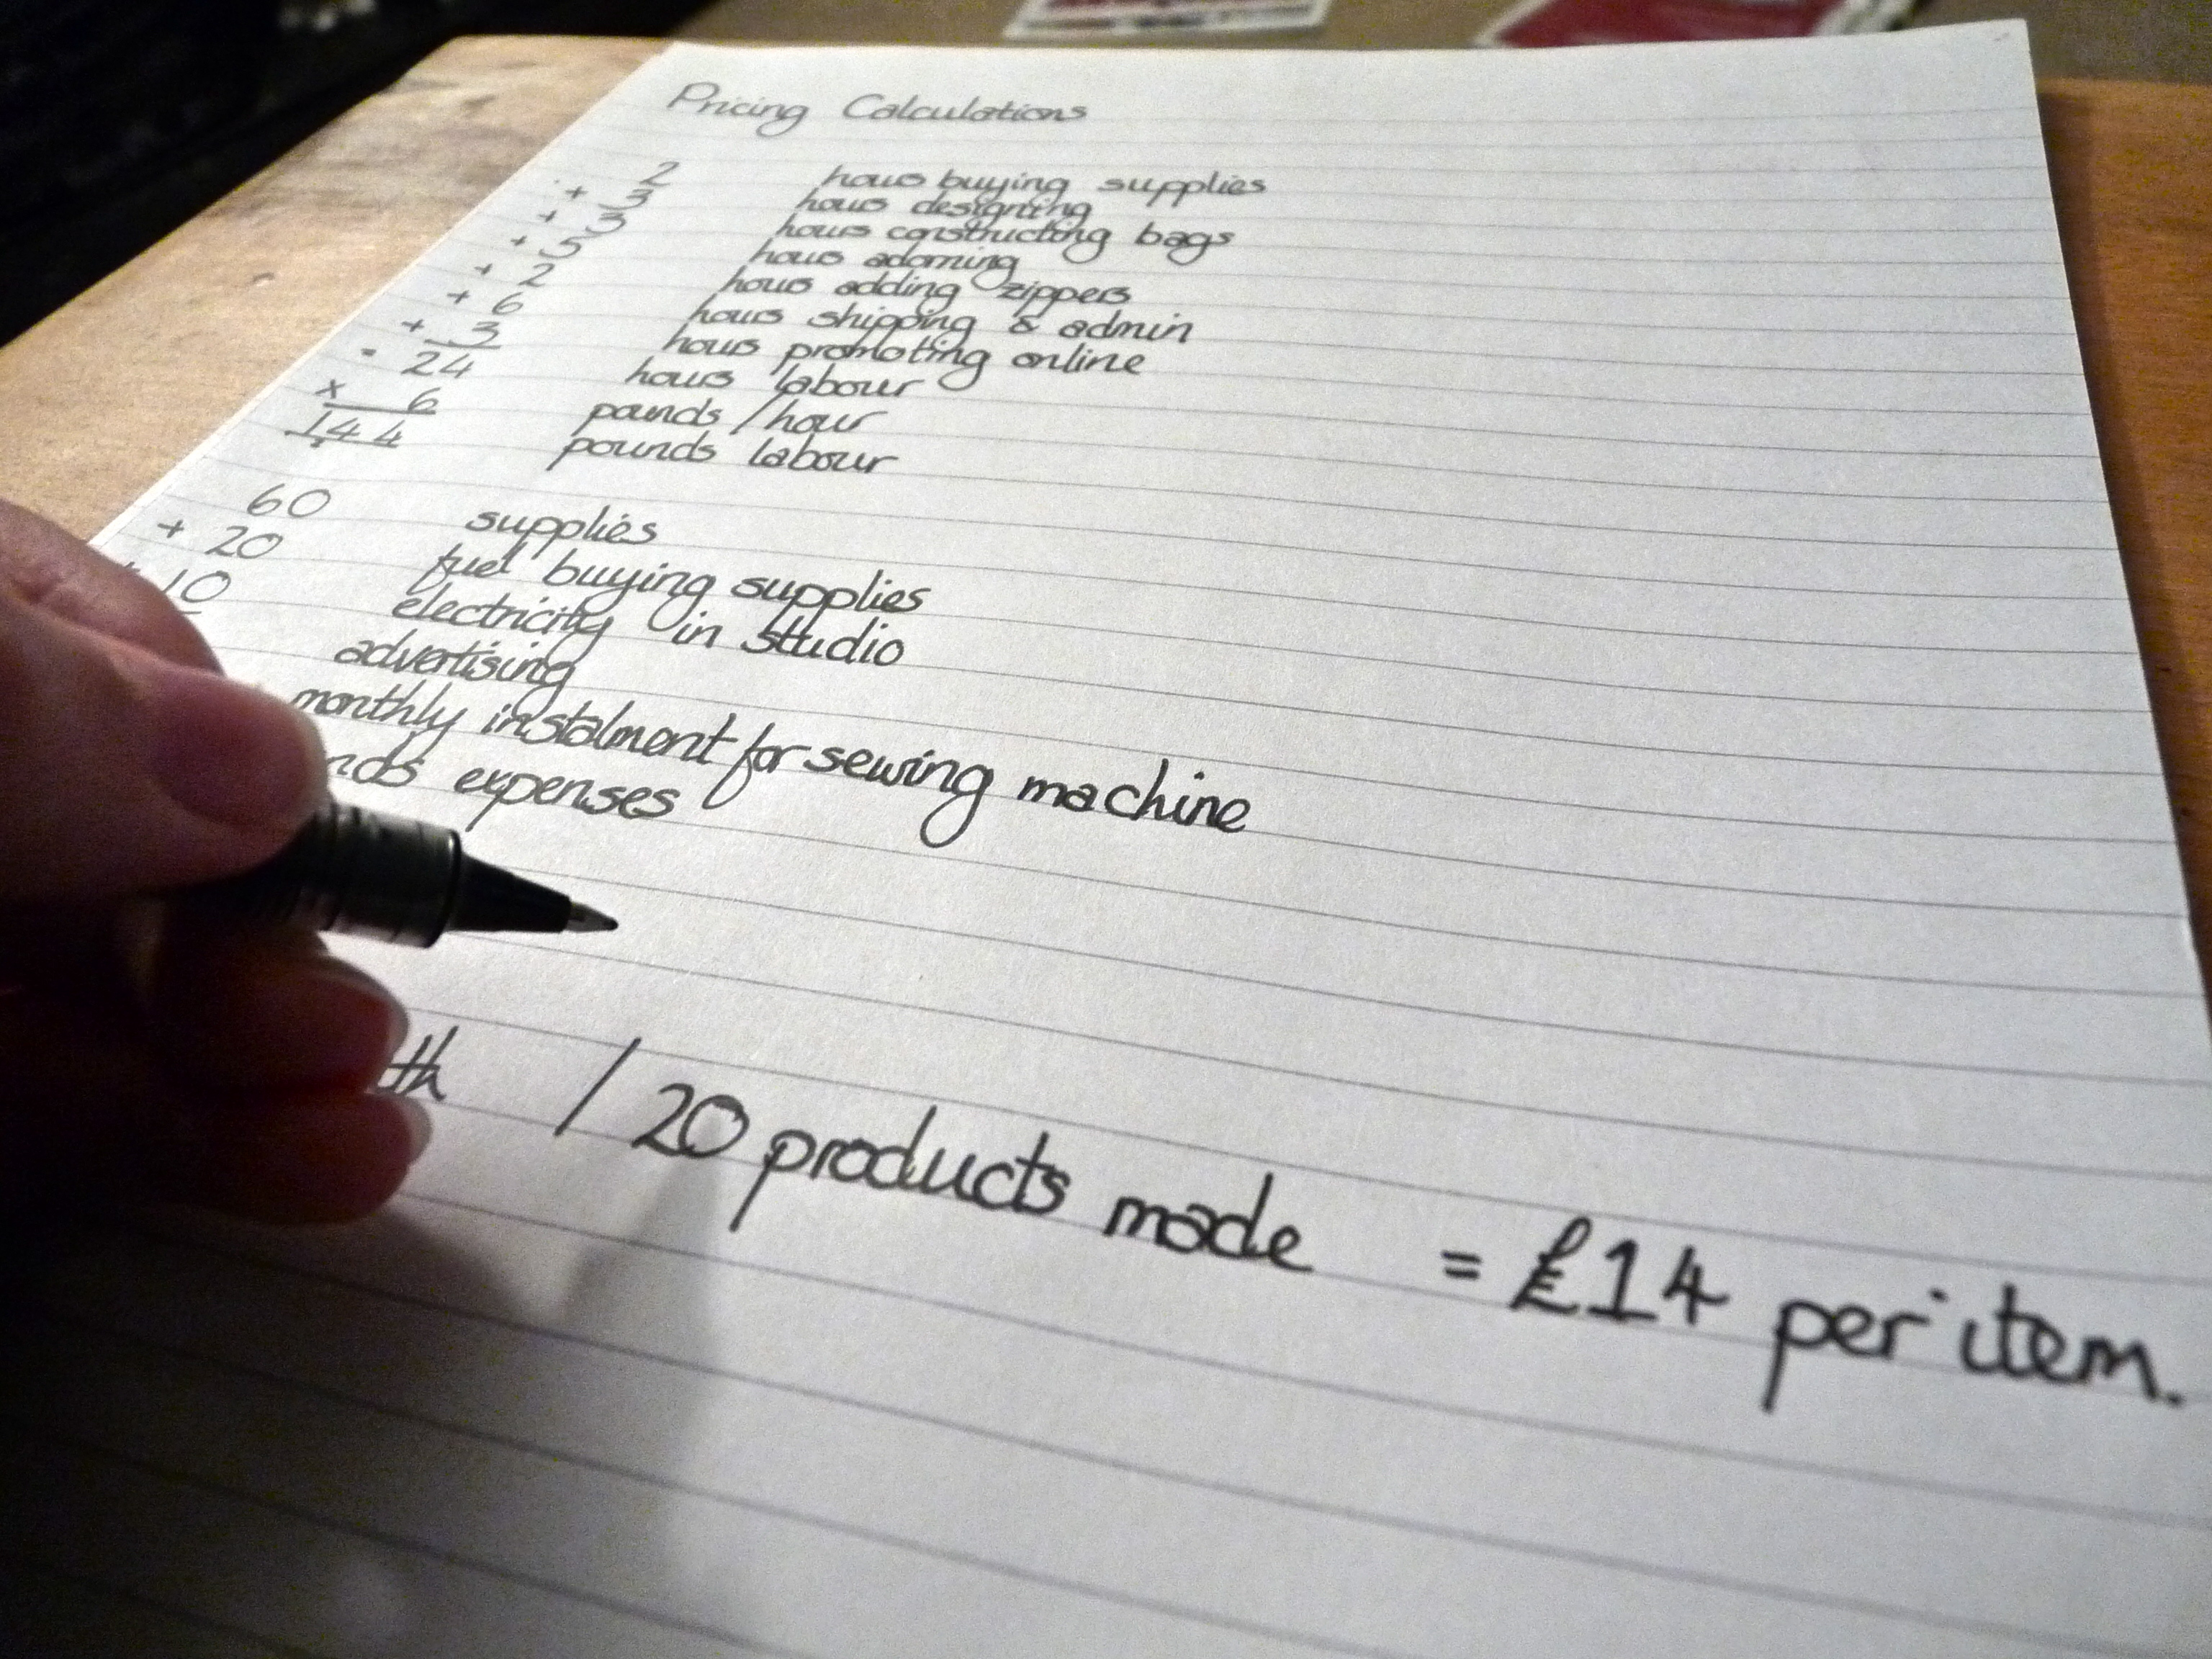 Pricing Calculations
2 hours buying supplies
+ 3 hours designing
+ 3 hours constructing bags
+ 5 hours adorning
+ 2 hours adding zippers
+ 6 hours shipping & admin
+ 3 hours promoting online
= 24 hours labour
x 6 pounds / hour
144 pounds labour
60 supplies
+ 20 fuel buying supplies
+ 10 electricity in studio
advertising
monthly instalment for sewing machine
nds expenses
th / 20 products made = £14 per item.